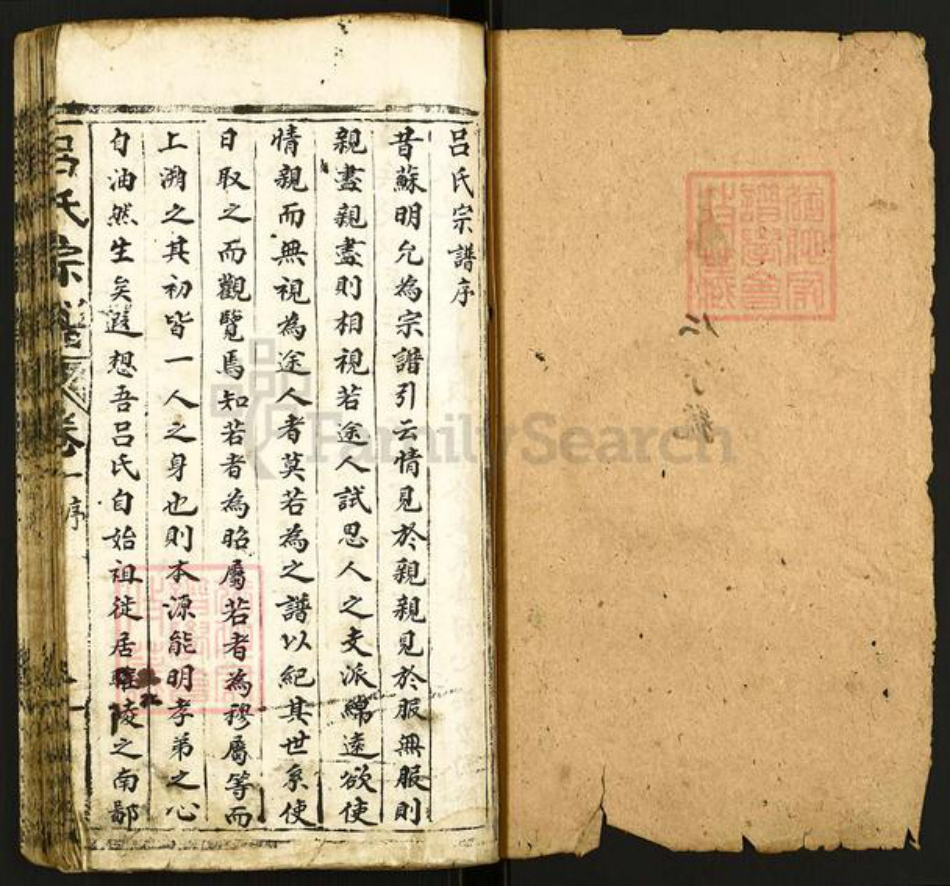 呂氏宗譜序
昔蘇明允為宗譜引云情見於親親見於服無服則
親盡親盡則相視若途人試思人之支派緜遠欲使
情親而無視為途人者莫若為之譜以紀其世系使
日取之而觀覽焉知若者為昭屬若者為穆屬等而
上溯之其初皆一人之身也則本源能明孝弟之心
自油然生矣遐想吾呂氏自始祖徙居睢陵之南鄙
呂氏宗譜
卷一
序
FamilySearch